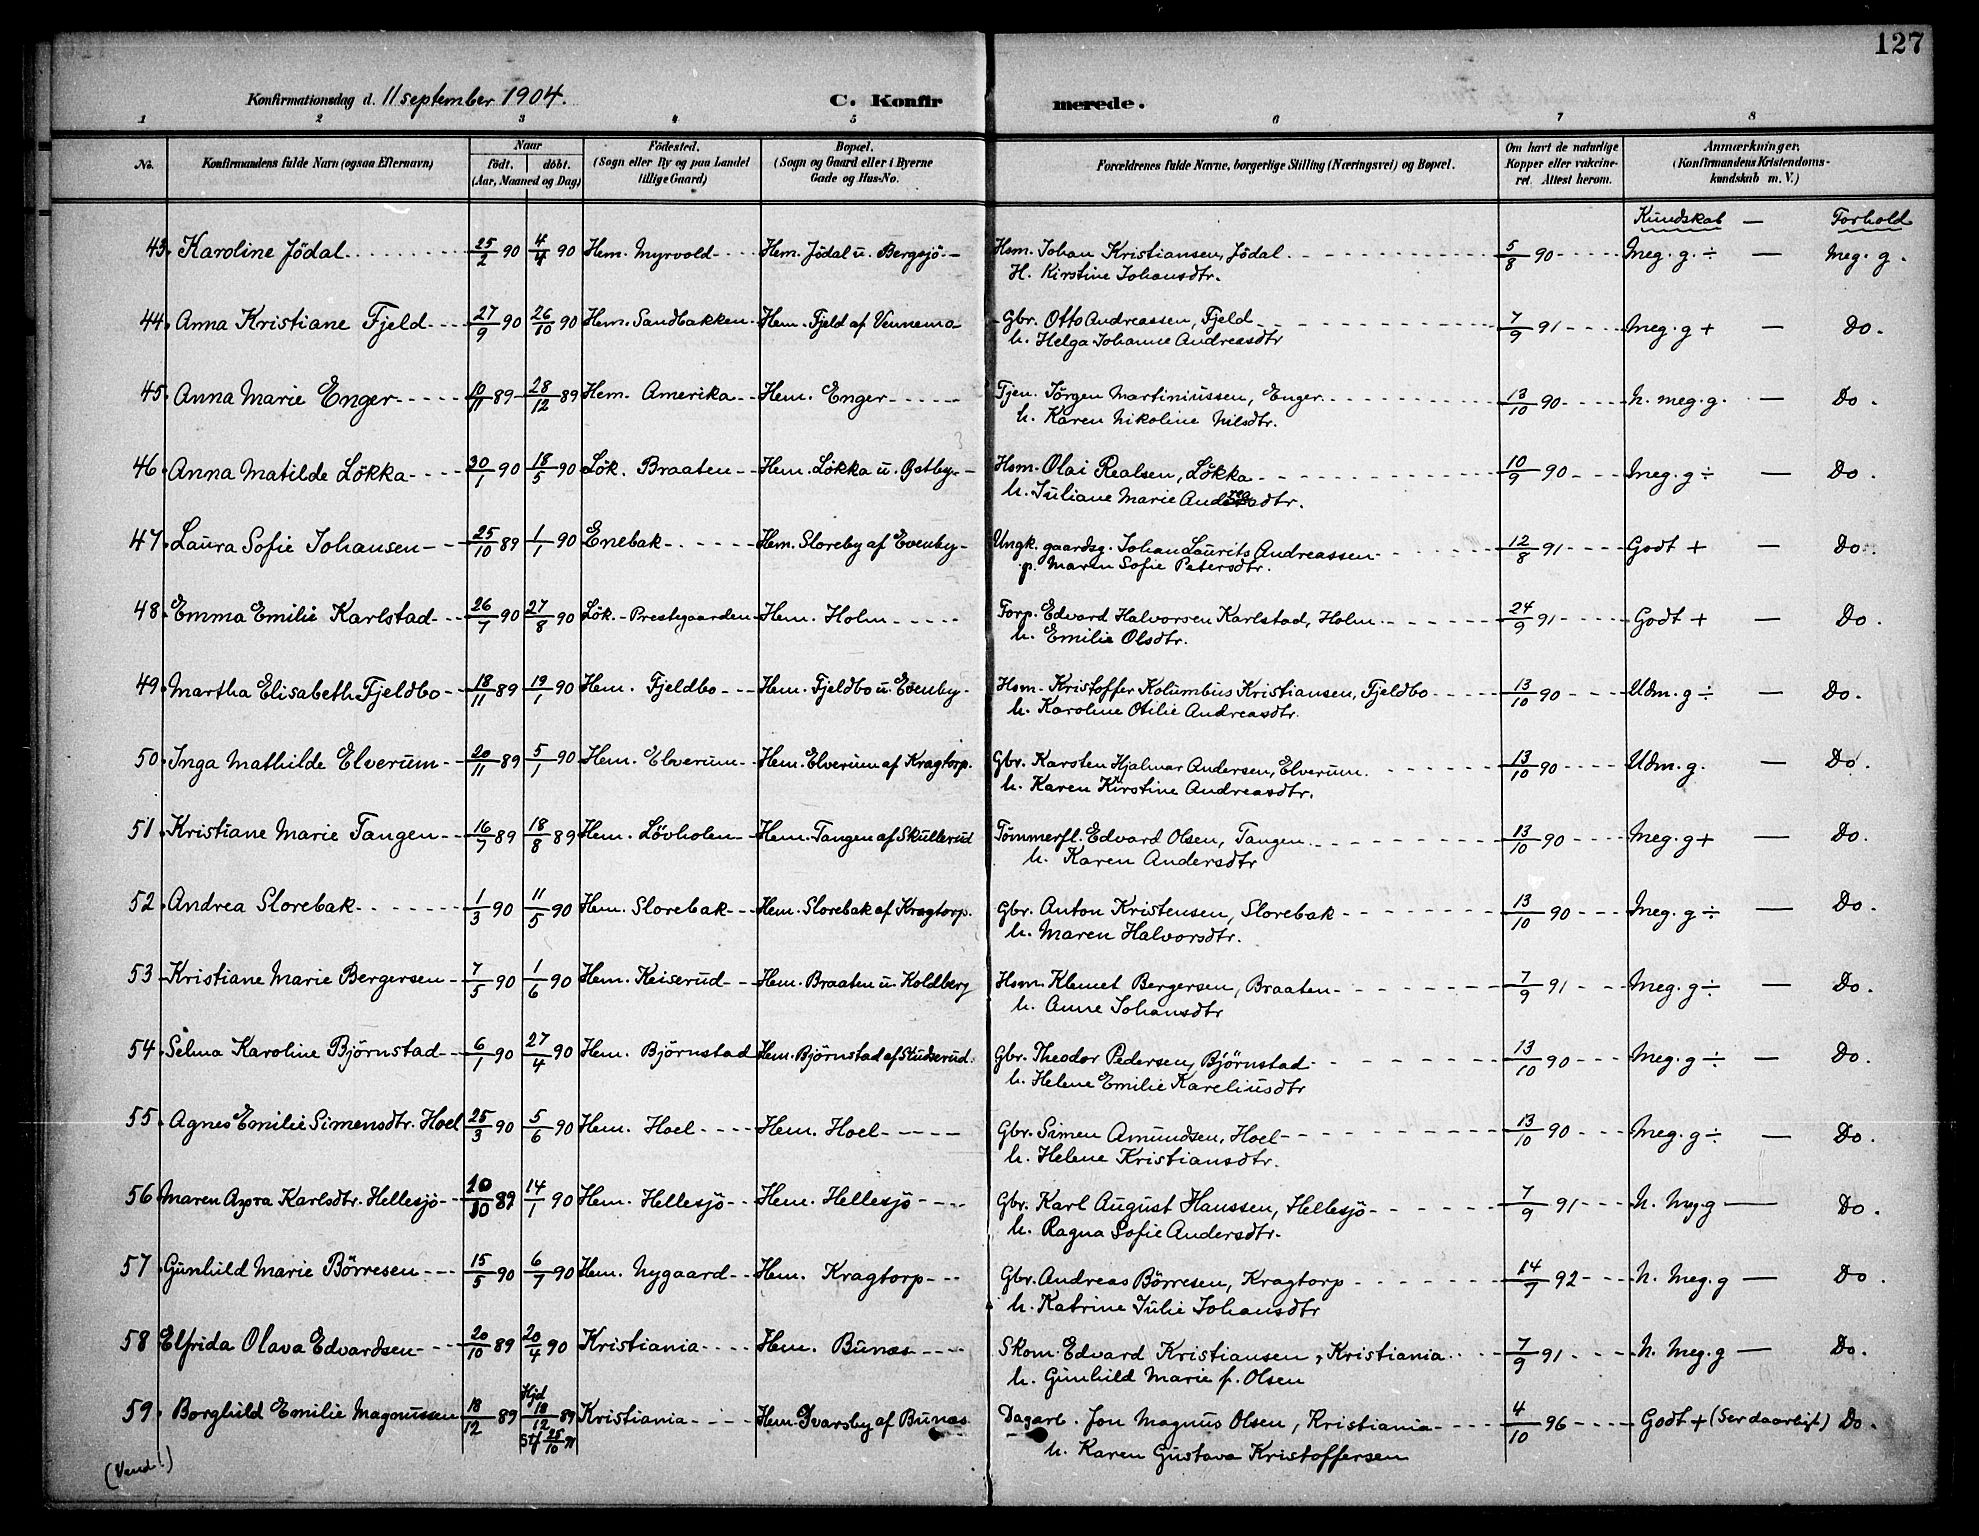 127
Konfirmationsdag d. 11 september 1904. C. Konfirmerede.
1 2 3 4 5 6 7 8
No. Konfirmandens fulde Navn (ogsaa Efternavn) Naar födt. döbt. (Aar, Maaned og Dag) Födested. (Sogn eller By og paa Landet tillige Gaard) Bopæl. (Sogn og Gaard eller i Byerne Gade og Hus-No. Forældrenes fulde Navne, borgerlige Stilling (Næringsvei) og Bopæl. Om havt de naturlige Kopper eller vakcineret. Attest herom. Anmærkninger, (Konfirmandens Kristendomskundskab m. V.)
Kundskab — Forhold
43. Karoline Jödal 25/2 90 4/4 90 Hem. Myrvold Hem. Jödal u. Bergsjö Hsm. Johan Kristiansen, Jödal 5/8 90 Meg. g. ÷ — Meg. g.
H. Kirstine Johansdtr.
44. Anna Kristiane Fjeld 27/9 90 26/10 90 Hem. Sandbakken Hem. Fjeld af Vennema Gbr. Otto Andreassen, Fjeld 7/9 91 Meg. g + — Do.
h. Helga Johanne Andreasdtr
45. Anna Marie Enger 10/11 89 28/12 89 Hem. Amerika Hem. Enger Tjen. Jörgen Martiniussen, Enger 13/10 90 N. meg. g. — Do.
h. Karen Nikoline Nilsdtr.
46. Anna Matilde Lökka 30/1 90 18/5 90 Lök. Braaten Hem. Lökka u. Ostby Hsm. Olai Realsen, Lökka 10/9 90 Meg. g ÷ — Do.
h. Juliane Marie Andreasdtr.
47. Laura Sofie Johansen 25/10 89 1/1 90 Enebak Hem. Sloreby af Evenby Ungk. gaardsg. Johan Laurits Andreassen 12/8 91 Godt + — Do.
p. Maren Sofie Petersdtr.
48. Emma Emilie Karlstad 26/7 90 27/8 90 Lök. Prestegaarden Hem. Holm Forp. Edvard Halvorsen Karlstad, Holm 24/9 91 Godt + — Do.
h. Emilie Olsdtr.
49. Martha Elisabeth Fjeldbo 18/11 89 19/1 90 Hem. Fjeldbo Hem. Fjeldbo u. Evenby Hsm. Kristoffer Kolumbus Kristiansen, Fjeldbo 13/10 90 Udm. g ÷ — Do.
h. Karoline Otilie Andreasdtr.
50. Inga Mathilde Elverum 20/11 89 5/1 90 Hem. Elverum Hem. Elverum af Kragtorp. Gbr. Karsten Hjalmar Andersen, Elverum 13/10 90 Udm. g. — Do.
h. Karen Kirstine Andreasdtr.
51. Kristiane Marie Tangen 16/7 89 18/8 89 Hem. Lövholen Hem. Tangen af Skullerud Tömmerfl. Edvard Olsen, Tangen 13/10 90 Meg. g + — Do.
h. Karen Andersdtr
52. Andrea Slorebak 1/3 90 11/5 90 Hem. Slorebak Hem. Slorebak af Kragtorp. Gbr. Anton Kristensen, Slorebak 13/10 90 Meg. g ÷ — Do.
h. Maren Halvorsdtr.
53. Kristiane Marie Bergersen 7/5 90 1/6 90 Hem. Keiserud Hem. Braaten u. Koldberg Hsm. Klemet Bergersen, Braaten 7/9 91 Meg. g ÷ — Do.
h. Anne Johansdtr
54. Selma Karoline Björnstad 6/1 90 27/4 90 Hem. Björnstad Hem. Björnstad af Studserud. Gbr. Theodor Pedersen, Björnstad 13/10 90 Meg. g ÷ — Do.
h. Helene Emilie Kareliusdtr
55. Agnes Emilie Simensdtr. Hoel 25/3 90 5/6 90 Hem. Hoel Hem. Hoel Gbr. Simen Amundsen, Hoel 13/10 90 Meg. g ÷ — Do.
h. Helene Kristiansdtr.
56. Maren Azora Karlsdtr. Hellesjö 10/10 89 14/1 90 Hem. Hellesjö Hem. Hellesjö Gbr. Karl August Hanssen, Hellesjö 7/9 91 N. Meg. g — Do.
h. Ragna Sofie Andersdtr.
57. Gunhild Marie Börresen 15/5 90 6/7 90 Hem. Nygaard Hem. Kragtorp Gbr. Andreas Börresen, Kragtorp 14/7 92 N. Meg. g — Do.
h. Katrine Julie Johansdtr
58. Elfrida Olava Edvardsen 20/10 89 20/4 90 Kristiania Hem. Bunæs Skom. Edvard Kristiansen, Kristiania 7/9 91 N. Meg. g — Do.
h. Gunhild Marie f. Olsen
59. Borghild Emilie Magnussen 18/12 89 Hjd 18/12 89 Stf 25/10 91 Kristiania Hem. Ivarsby af Bunæs Dagarb. Jon Magnus Olsen, Kristiania 4/10 96 Godt + (Ser daarligt) Do.
h. Karen Gustava Kristoffersen
(Vend!)